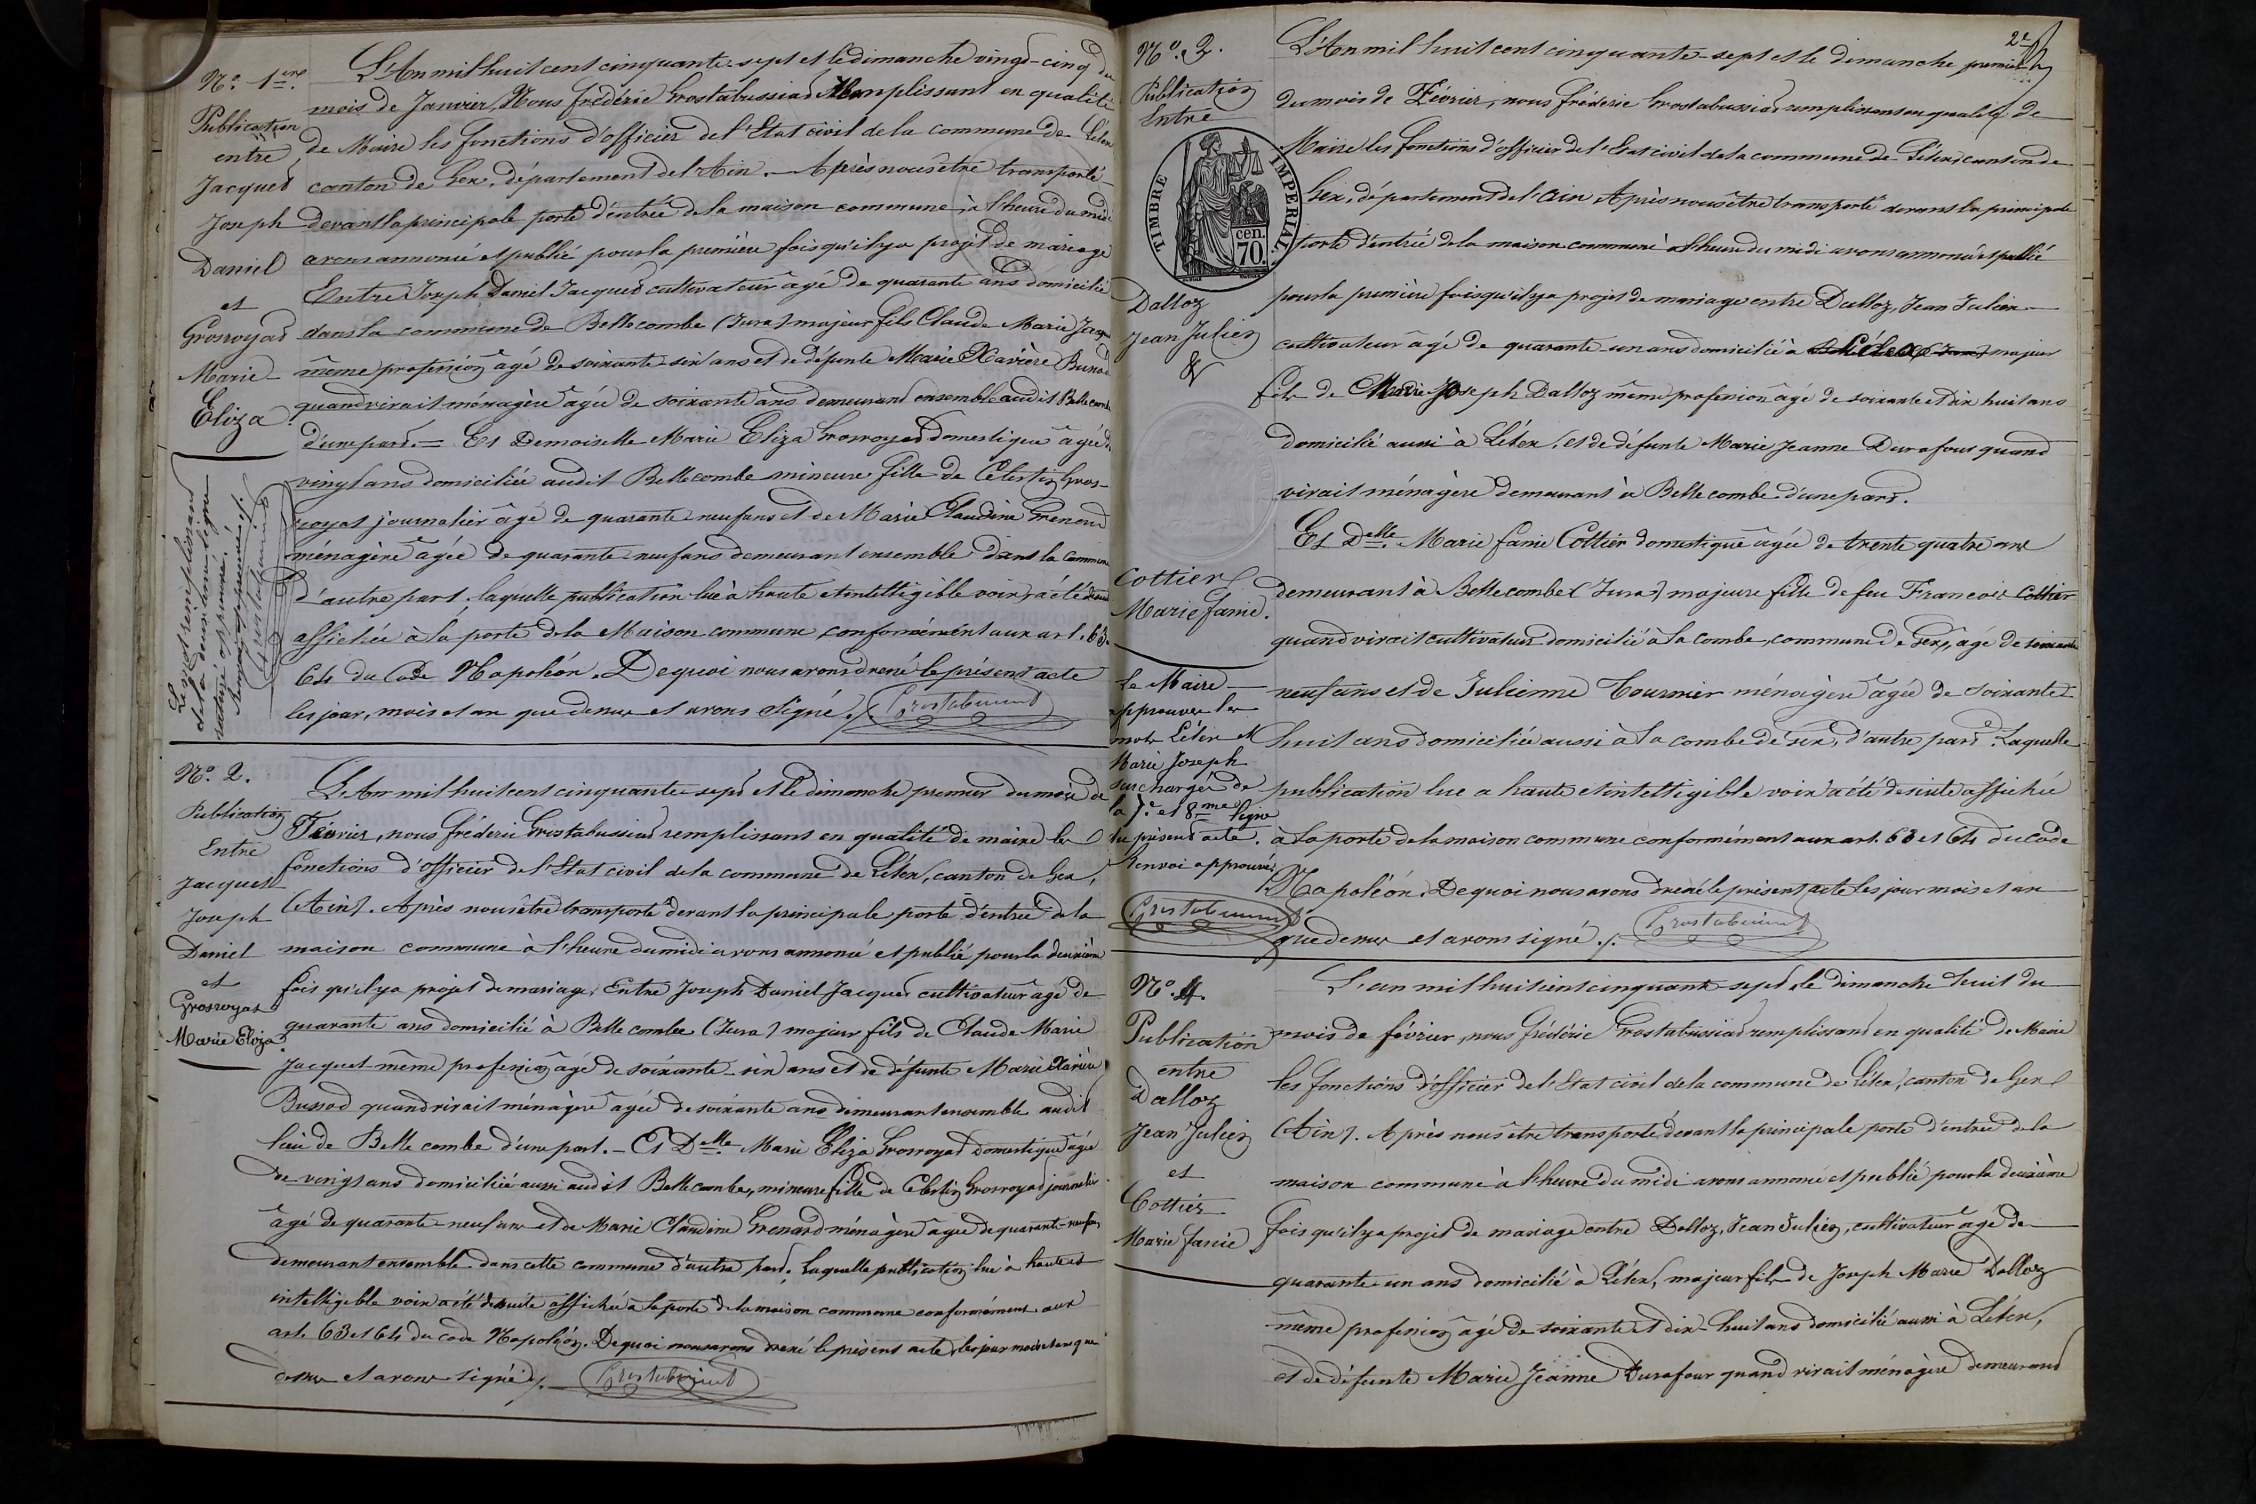 N.º 1ere
Publication
entre
Jacques
Joseph
Daniel
et
Grosroyat
Marie
Eliza.
L'An mil huit cent cinquante-sept et le dimanche vingt-cinq du
mois de Janvier, Nous frédéric Grostabussiat remplissant en qualité
de Maire les fonctions d'officier de l'Etat civil de la commune de Lélex
canton de Gex, département de l'Ain. - Après nous être transporté
devant la principale porte d'entrée de la maison commune, à l'heure du midi
avons annoncé et publié pour la première fois qu'il y a projet de mariage
Entre Joseph Daniel Jacques cultivateur âgé de quarante ans domicilié
dans la commune de Bellecombe (Jura) majeur fils Claude Marie
même profession âgé de soixante-six ans et de défunte Marie Xavière
quand vivait ménagère âgée de soixante ans demeurant ensemble audit Bellecombe
d'une part. = Et Demoiselle Marie Eliza Grosroyat domestique âgée de
vingt ans domiciliée audit Bellecombe mineure fille de Célestin Gros-
royat journalier âgé de quarante neuf ans et de Marie Claudine Grenard
ménagère âgée de quarante-neuf ans demeurant ensemble dans la commune
d'autre part, laquelle publication lue à haute et intelligible voix, a été
affichée à la porte de la Maison commune conformément aux art. 63
64 du Code Napoléon. De quoi nous avons dressé le présent acte
les jour, mois et an que dessus et avons signé ./. Grostabussiat
Le mot remplissant
de la deuxième ligne
approuvé.
Grostabussiat
N.º 2.
Publication
Entre
Jacques
Joseph
Daniel
et
Grosroyat
Marie Eliza.
L'An mil huit cent cinquante-sept et le dimanche premier du mois de
Février, nous fréderic Grostabussiat remplissant en qualité de maire les
fonctions d'officier de l'Etat civil de la commune de Lélex, canton de Gex,
(Ain). Après nous être transporté devant la principale porte d'entrée de la
maison commune à l'heure du midi avons annoncé et publié pour la deuxième
fois qu'il y a projet de mariage, Entre Joseph Daniel Jacques cultivateur âgé de
quarante ans domicilié à Bellecombe (Jura) majeur fils de Claude Marie
Jacques même profession âgé de soixante-six ans et de défunte Marie Xavière
Bussod quand vivait ménagère âgée de soixante ans demeurant ensemble audit
lieu de Belle combe d'une part. - Et Delle Marie Eliza Grosroyat Domestique âgée
de vingt ans domiciliée aussi audit Bellecombe, mineure fille de Célestin Grosroyat journalier
âgé de quarante-neuf ans et de Marie Claudine Grenard ménagère âgée de quarante-neuf ans
demeurant ensemble dans cette commune d'autre part. Laquelle publication lue à haute et
intelligible voix a été de suite affichée à la porte de la maison commune conformément aux
art. 63 et 64 du code Napoléon. De quoi nous avons dressé le présent acte, les jour mois et an que
dessus et avons signé ./. Grostabussiat
2e
N.º 2.
Publication
Entre
TIMBRE IMPERIAL.
cen.
70.
Dalloz
Jean Julien
&
Cottier
Marie fanie.
L'An mil huit cent cinquante-sept et le dimanche premier
du mois de Février, nous fréderic Grostabussiat remplissant en qualité de
Maire les fonctions d'officier de l'Etat civil de la commune de Lélex, canton de
Gex, département de l'Ain Après nous être transporté devant la principale
porte d'entrée de la maison commune à l'heure du midi avons annoncé et publié
pour la première fois qu'il y a projet de mariage entre Dalloz, Jean Julien
cultivateur âgé de quarante-un ans domicilié à Lélex majeur
fils de Marie Joseph Dalloz même profession âgé de soixante et dix huit ans
domicilié aussi à Lélex, et de défunte Marie Jeanne Durafour quand
vivait ménagère demeurant à Bellecombe d'une part.
Et Delle Marie fanie Cottier domestique âgée de trente quatre ans
demeurant à Bellecombe (Jura) majeure fille de feu François Cottier
quand vivait cultivateur domicilié à la combe, commune de Gex, âgé de soixante
neuf ans et de Julienne Tournier ménagère âgée de soixante-
huit ans domiciliée aussi à la combe de Gex, d'autre part. Laquelle
publication lue a haute et intelligible voix a été de suite affichée
à la porte de la maison commune conformément aux art. 63 et 64 du Code
Napoléon. De quoi nous avons dressé le présent acte les jour mois et an
que dessus et avons signé ./. Grostabussiat
Le Maire
approuve les
mots Lélex et
Marie Joseph
surchargés de
la 7e et 8me ligne
du présent acte.
Renvoi approuvé
Grostabussiat
N.º 4.
Publication
entre
Dalloz
Jean Julien
et
Cottier
Marie fanie
L'an mil huit cent cinquante-sept le dimanche huit du
mois de février, nous frédéric Grostabussiat remplissant en qualité de Maire
les fonctions d'officier de l'Etat civil de la commune de Lélex, canton de Gex
(Ain). Après nous être transporté devant la principale porte d'entrée de la
maison commune à l'heure du midi avons annoncé et publié pour la deuxième
fois qu'il y a projet de mariage entre Dalloz, Jean Julien, cultivateur âgé de
quarante-un ans domicilié à Lélex, majeur fils de Joseph Marie Dalloz
même profession âgé de soixante et dix-huit ans domicilié aussi à Lélex,
et de défunte Marie Jeanne Durafour quand vivait ménagère demeurant